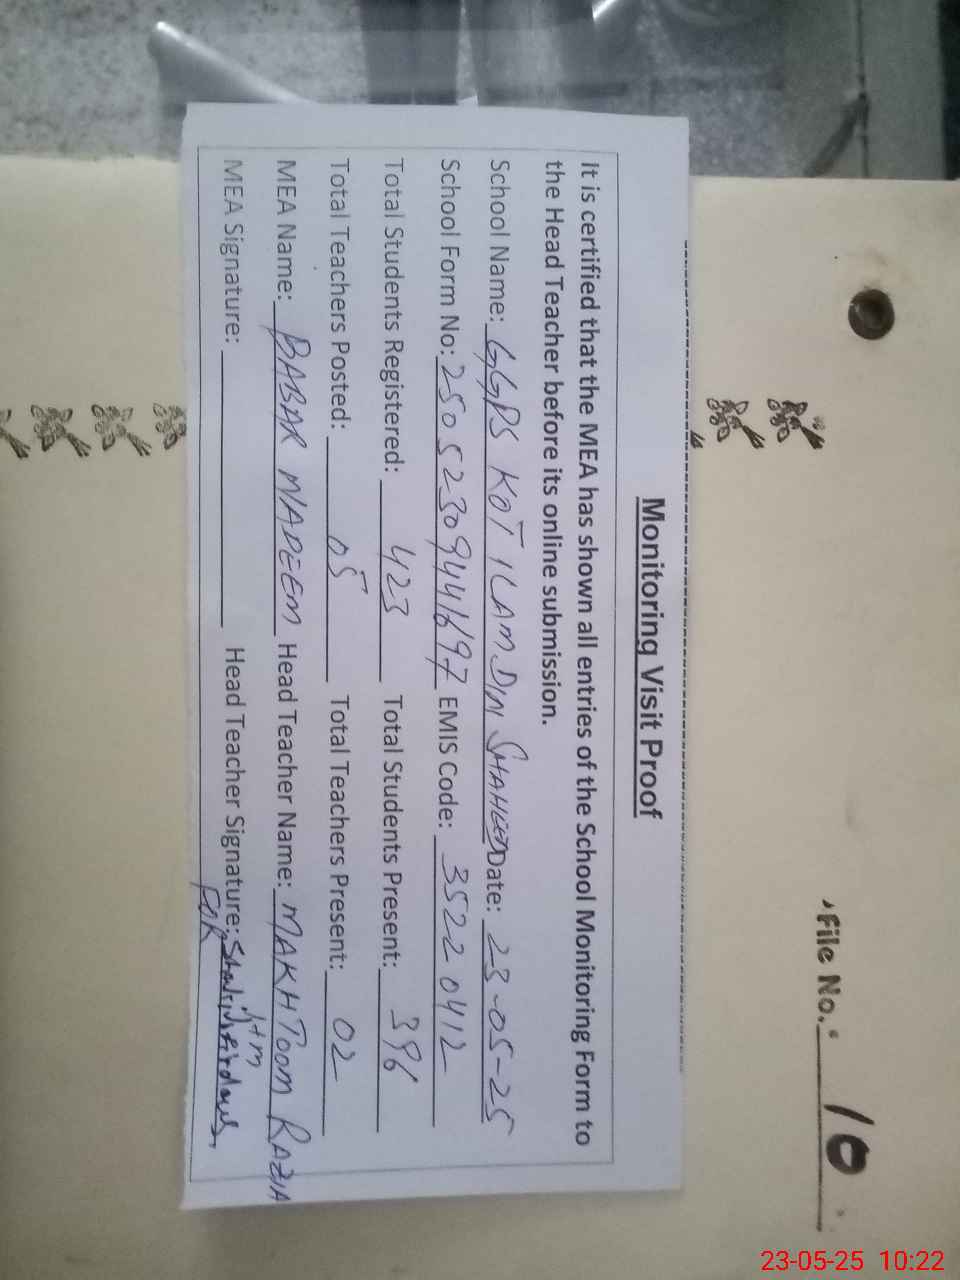 File No. 10
Monitoring Visit Proof
It is certified that the MEA has shown all entries of the School Monitoring Form to
the Head Teacher before its online submission.
School Name: GGPS KOT ILAM DIN SHAHEED Date: 23-05-25
School Form No: 25052309441697 EMIS Code: 35220412
Total Students Registered: 423 Total Students Present: 396
Total Teachers Posted: 05 Total Teachers Present: 02
MEA Name: BABAR NADEEM Head Teacher Name: MAKHTOOM RAZIA
MEA Signature: Head Teacher Signature:
FOR
23-05-25 10:22